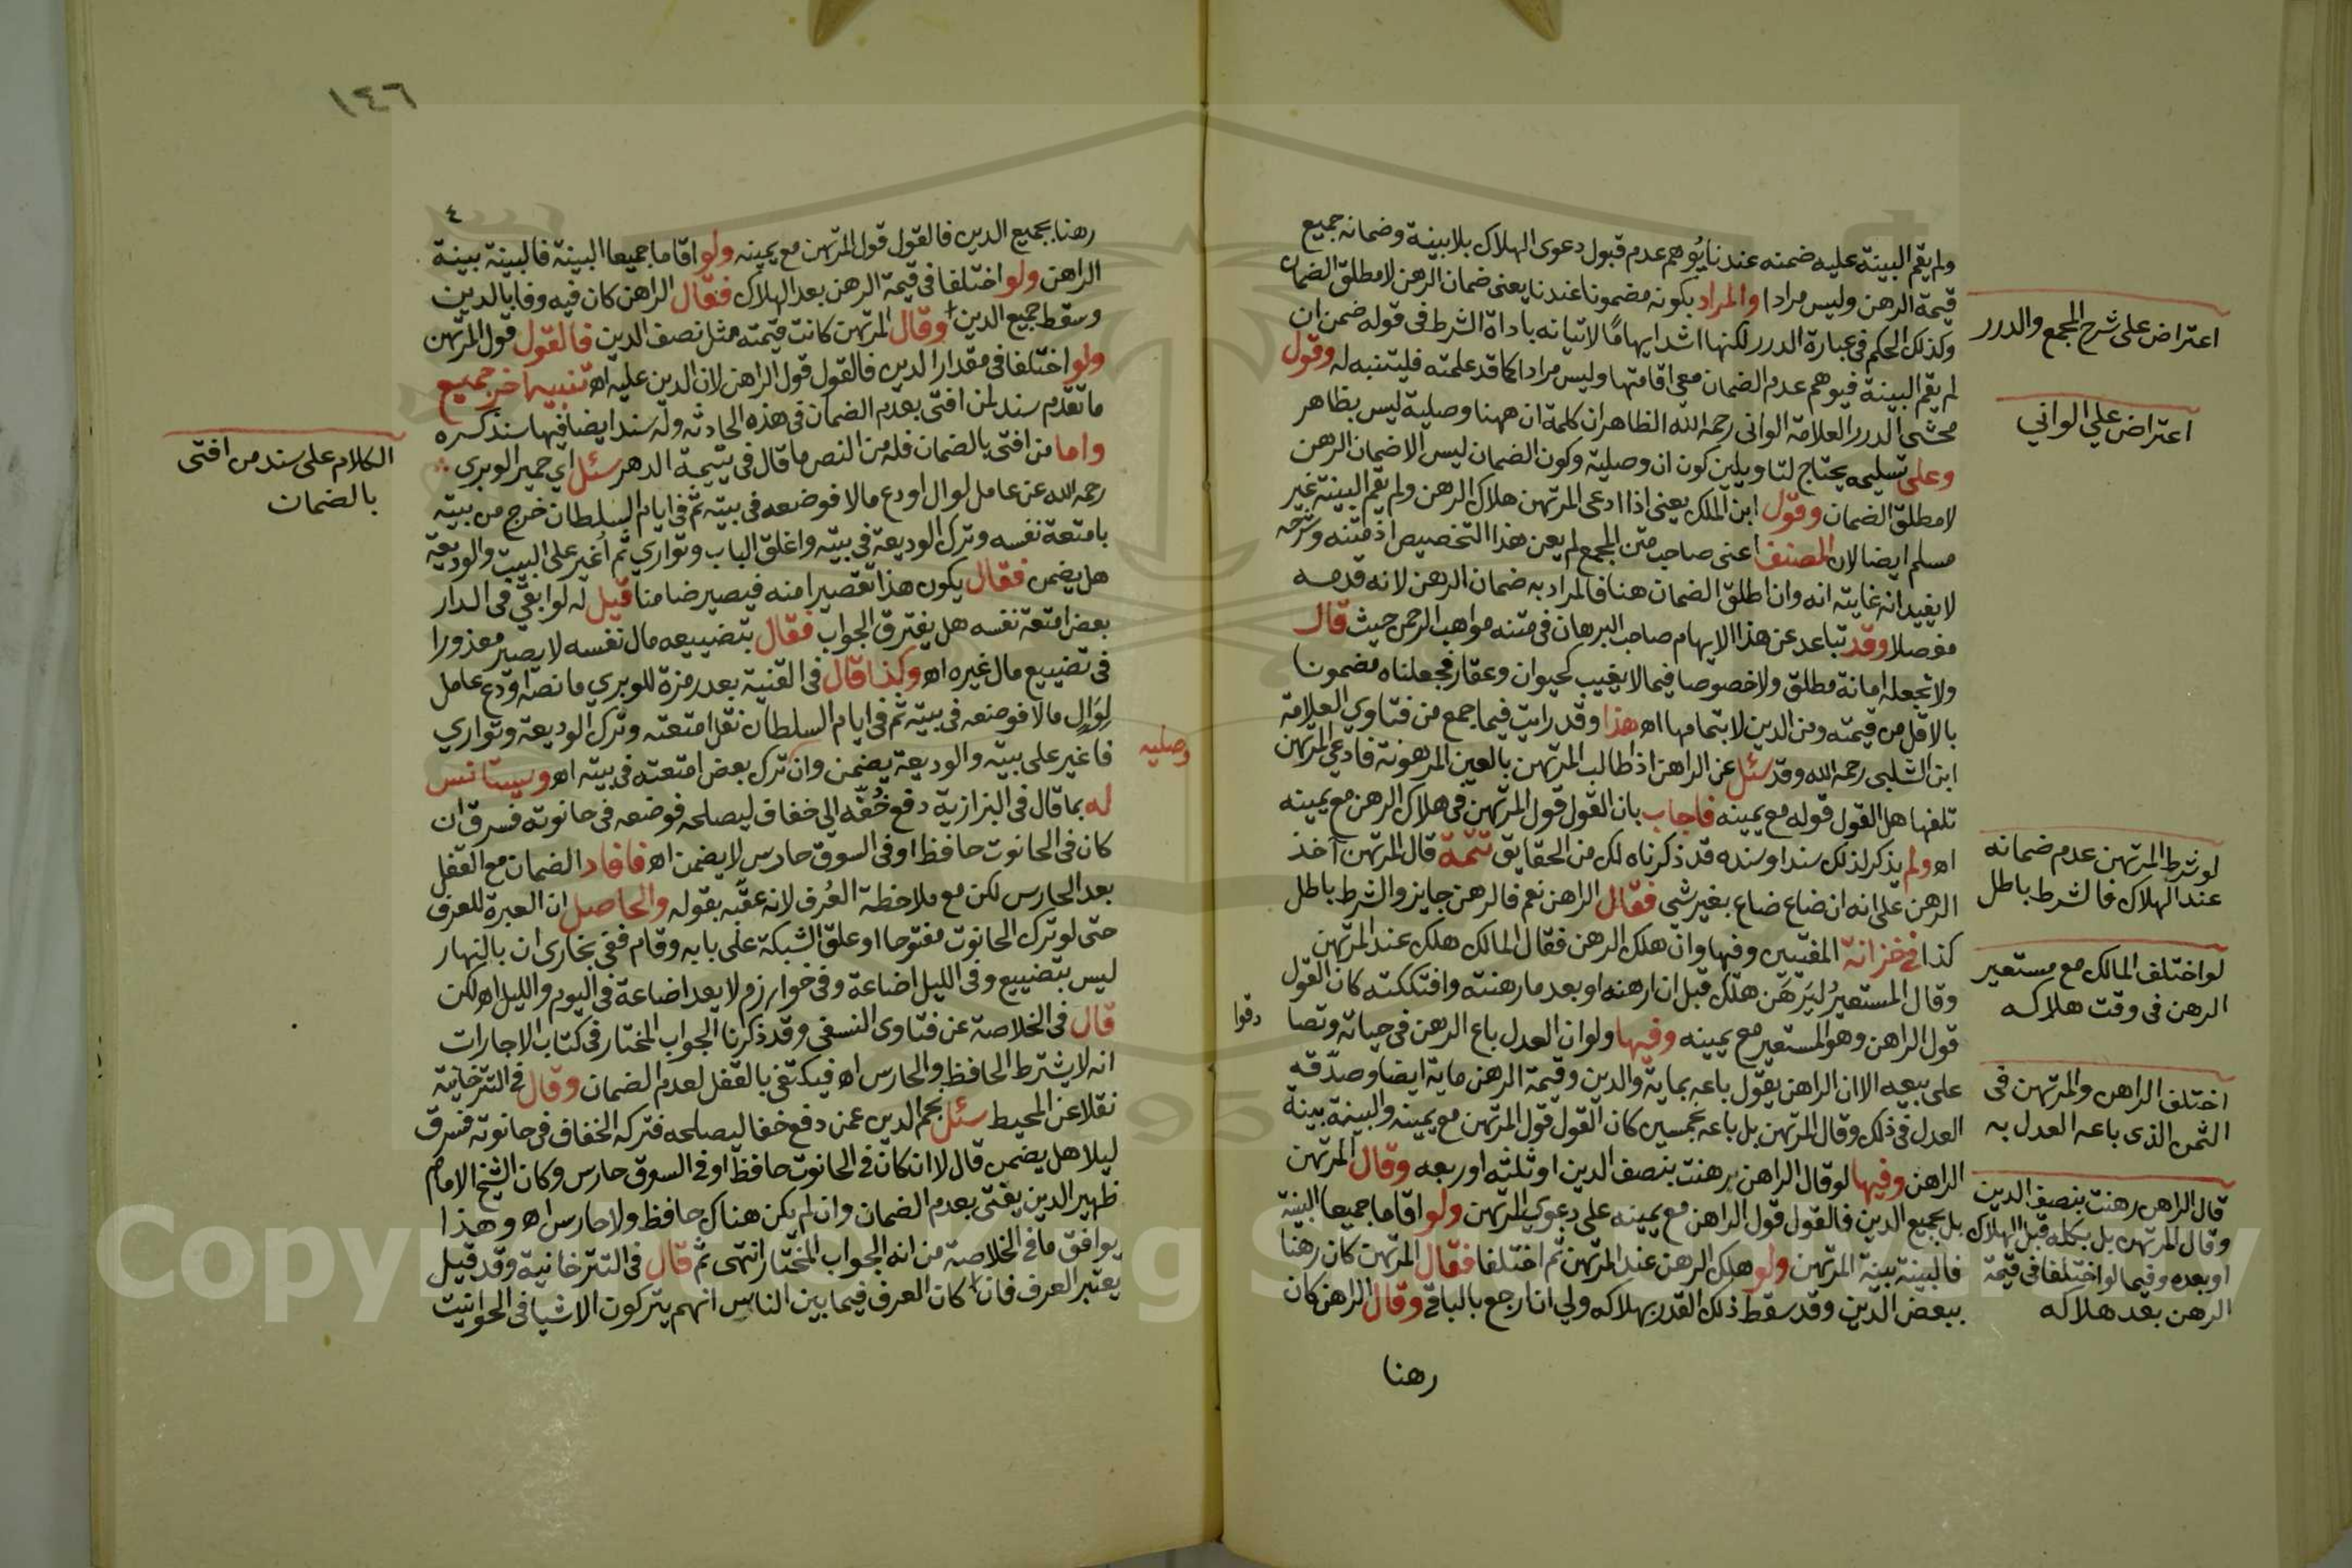 ولم يقم البينة عليه ضمنه عندنا يُوهم عدم قبول دعوى الهلاك بلا بينة وضمانه جميع
قيمة الرهن وليس مرادا والمراد بكونه مضمونا عندنا يعني ضمان الرهن لا مطلق الضمان
وكذلك الحكم في عبارة الدرر لكنها اشد ايهامًا لاتيانه باداة الشرط في قوله ضمن ان
لم يقم البينة فيوهم عدم الضمان مع اقامتها وليس مرادا كما قد علمته فليتنبه له وقول
محشى الدرر العلامة الواني رحمه الله الظاهر ان كلمة ان ههنا وصلية ليس بظاهر
وعلى تسليمه يحتاج لتاويلين كون ان وصلية وكون الضمان ليس الا ضمان الرهن
لا مطلق الضمان وقول ابن الملك يعني اذا ادعى المرتهن هلاك الرهن ولم يقم البينة غير
مسلم ايضا لان المصنف اعنى صاحب متن المجمع لم يعن هذا التخصيص اذ متنه وشرحه
لا يفيد انه غايته انه وان اطلق الضمان هنا فالمراد به ضمان الرهن لانه قدمه
مفصلا وقد تباعد عن هذا الايهام صاحب البرهان في متنه مواهب الرحمن حيث قال
ولا تجعله امانة مطلق ولا خصوصا فيما لا يغيب كحيوان وعقار فجعلناه مضمونا
بالاقل من قيمته ومن الدين لا بتمامها اه هذا وقد رايت فيما جمع من فتاوي العلامة
ابن الشلبي رحمه الله وقد سئل عن الراهن اذا طالب المرتهن بالعين المرهونة فادعي المرتهن
تلفها هل القول قوله مع يمينه فاجاب بان القول قول المرتهن في هلاك الرهن مع يمينه
اه ولم يذكر لذلك سندا وسنده قد ذكرناه لك من الحقايق تتمة قال المرتهن آخذ
الرهن على انه ان ضاع ضاع بغير شي فقال الراهن نعم فالرهن جايز والشرط باطل
كذا في خزانة المفتين وفيها وان هلك الرهن فقال المالك هلك عند المرتهن
وقال المستعيرُ ليَرهَن هلك قبل ان ارهنه او بعد ما رهنته وافتككته كان القول
قول الراهن وهو المستعير مع يمينه وفيها ولو ان العدل باع الرهن في حياته وتصا
دقوا
على بيعه الا ان الراهن يقول باعه بماية والدين وقيمة الرهن ماية ايضا وصدّقه
العدل في ذلك وقال المرتهن بل باعه بخمسين كان القول قول المرتهن مع يمينه والبينة بينة
الراهن وفيها لو قال الراهن رهنت بنصف الدين او ثلثه او ربعه وقال المرتهن
بل بجميع الدين فالقول قول الراهن مع يمينه على دعوى المرتهن ولو اقاما جميعا البينة
فالبينة بينة المرتهن ولو هلك الرهن عند المرتهن ثم اختلفا فقال المرتهن كان رهنا
ببعض الدين وقد سقط ذلك القدر بهلاكه ولي ان ارجع بالباقي وقال الراهن كان
رهنا
اعتراض على شرح المجمع والدرر
اعتراض علي الواني
لو شرط المرتهن عدم ضمانه
عند الهلاك فالشرط باطل
لو اختلف المالك مع مستعير
الرهن في وقت هلاكه
اختلف الراهن والمرتهن في
الثمن الذي باعه العدل به
قال الراهن رهنت بنصف الدين
وقال المرتهن بل بكله قبل الهلاك
او بعده وفيما لو اختلفا في قيمة
الرهن بعد هلاكه
١٤٦
رهنا بجميع الدين فالقول قول المرتهن مع يمينه ولو اقاما جميعا البينة فالبينة بينة
الراهن ولو اختلفا في قيمة الرهن بعد الهلاك فقال الراهن كان فيه وفا بالدين
وسقط جميع الدين وقال المرتهن كانت قيمته مثل نصف الدين فالقول قول المرتهن
ولو اختلفا في مقدار الدين فالقول قول الراهن لان الدين عليه اه تنبيه اخر جميع
ما تقدم سند لمن افتى بعدم الضمان في هذه الحادثه وله سند ايضا فيها سنذكره
واما من افتى بالضمان فله من النص ما قال في يتيمة الدهر سئل اي حمير الوبري
رحمه الله عن عامل لوال اودع مالا فوضعه في بيته ثم في ايام السلطان خرج من بيته
بامتعة نفسه وترك الوديعة في بيته واغلق الباب وتواري ثم اُغير على البيت والوديعة
هل يضمن فقال يكون هذا تقصيرا منه فيصير ضامنا قيل له لو ابقي في الدار
بعض امتعة نفسه هل يفترق الجواب فقال بتضييعه مال نفسه لا يصير معذورا
في تضييع مال غيره اه وكذا قال في القنية بعد رمزة للوبري ما نصه اودع عامل
لوَالٍ مالا فوضعه في بيته ثم في ايام السلطان نقل امتعته وترك الوديعة وتواري
فاغير على بيته والوديعة يضمن وان ترك بعض امتعته في بيته اه ويستانس
وصليه
له بما قال في البزازية دفع خُفّه الي خفاف ليصلحه فوضعه في حانوته فسرق ان
كان في الحانوت حافظ او في السوق حارس لا يضمن اه فافاد الضمان مع القفل
بعد الحارس لكن مع ملاحظة العُرف لانه عقّبه بقوله والحاصل ان العبرة للعرف
حتى لو ترك الحانوت مفتوحا او علق الشبكة على بابه وقام ففي بخارى ان بالنهار
ليس بتضييع وفي الليل اضاعة وفي خوارزم لا يعد اضاعة في اليوم والليل اه لكن
قال في الخلاصة عن فتاوى النسفي وقد ذكرنا الجواب المختار في كتاب الاجارات
انه لا يشترط الحافظ والحارس اه فيكتفي بالقفل لعدم الضمان وقال في التترخانية
نقلا عن المحيط سئل نجم الدين عمن دفع خفا ليصلحه فتركه الخفاف في حانوته فسرق
ليلا هل يضمن قال لا ان كان في الحانوت حافظ او في السوق حارس وكان الشيخ الامام
ظهير الدين يفتى بعدم الضمان وان لم يكن هناك حافظ ولا حارس اه وهذا
يوافق ما في الخلاصة من انه الجواب المختار انتهى ثم قال في التترخانية وقد قيل
يعتبر العرف فان كان العرف فيما بين الناس انهم يتركون الاشيا في الحوانيت
الكلام على سند من افتى
بالضمان